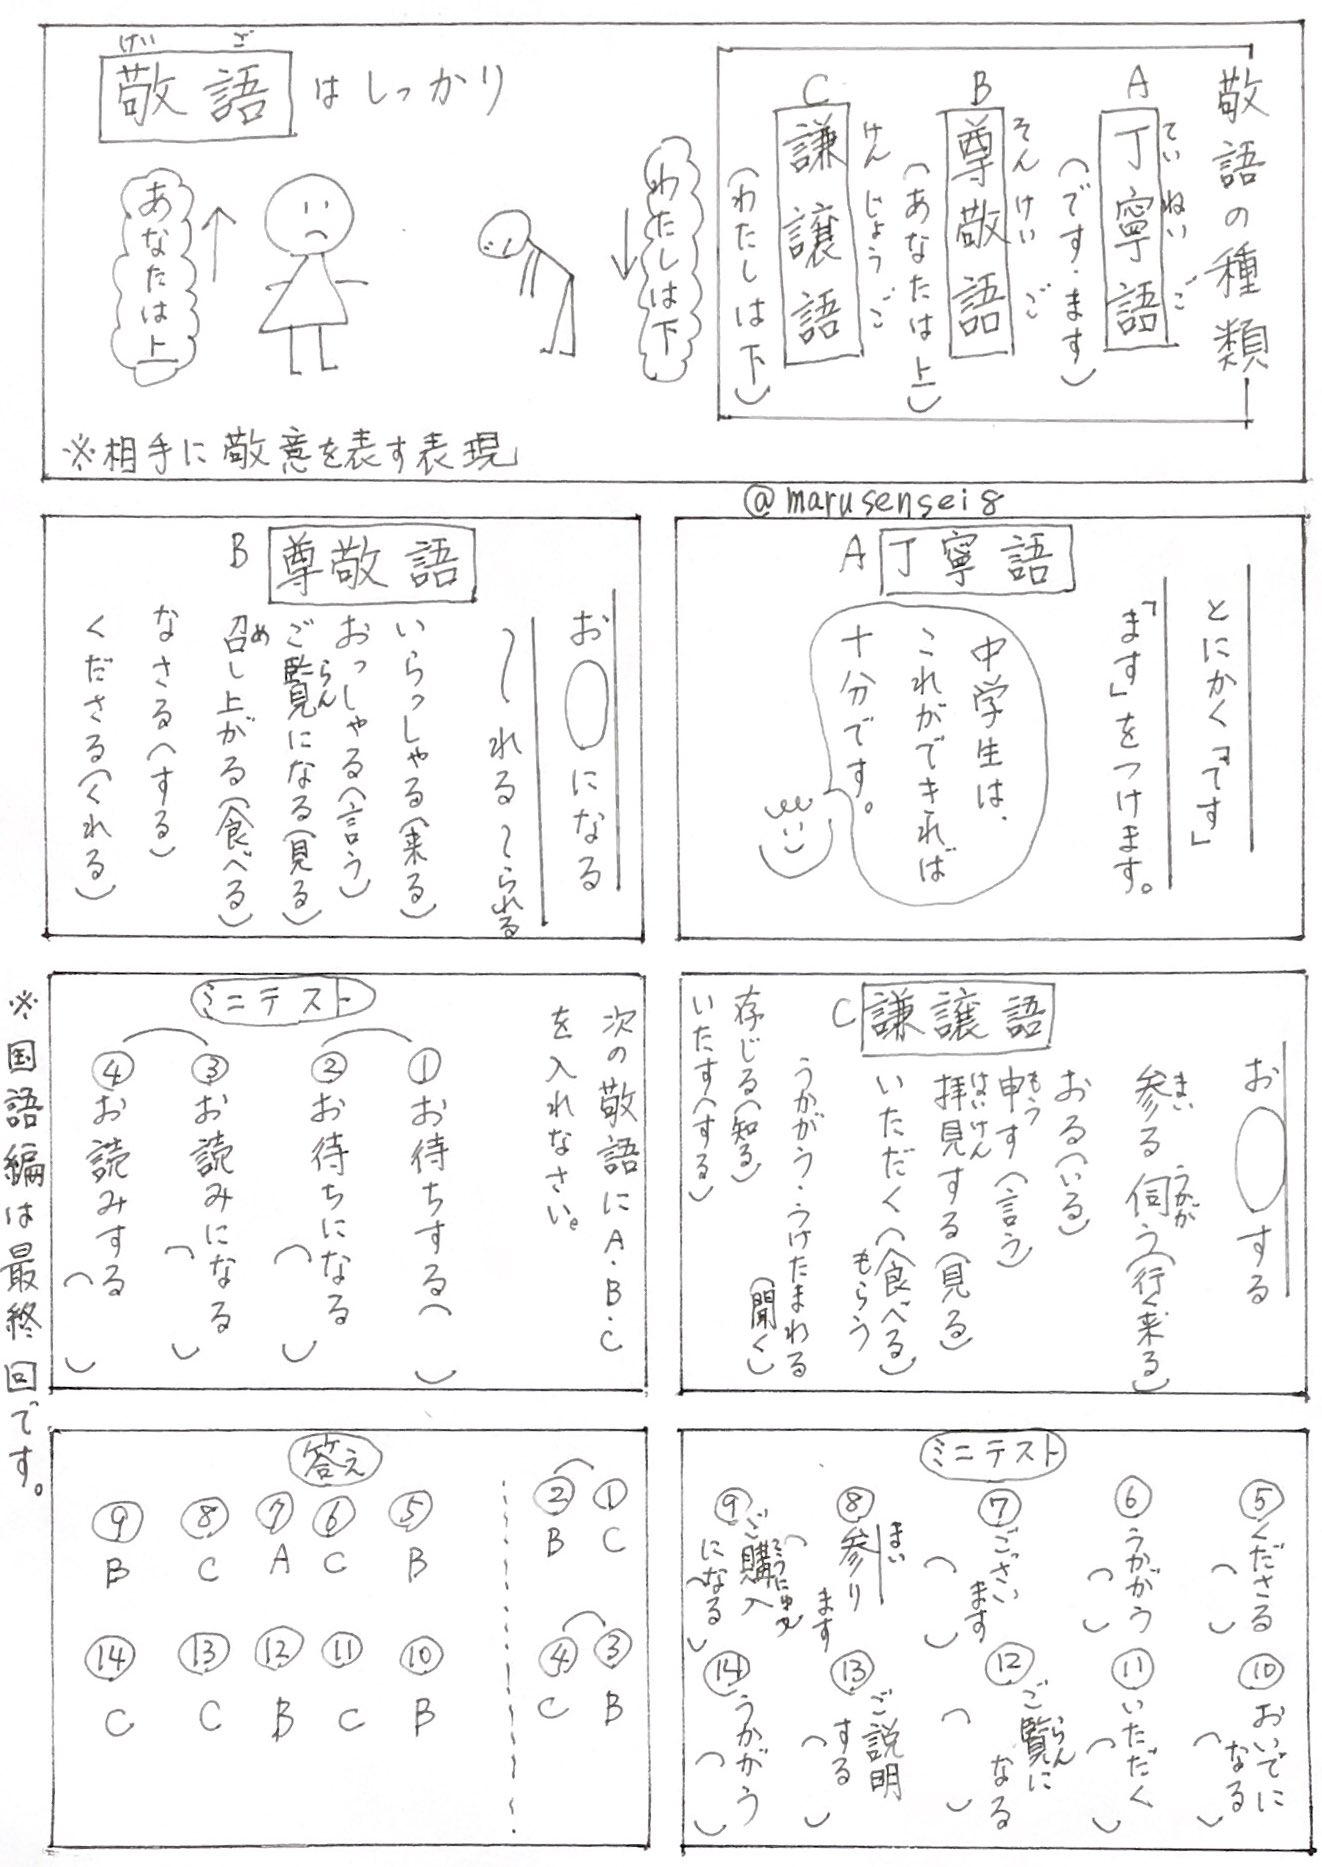 敬語はしっかり
けいご
敬語の種類
A
丁寧語
ていねいご
(です・ます)
B
尊敬語
そんけいご
(あなたは上)
C
謙譲語
けんじょうご
(わたしは下)
わたしは下
あなたは上
※相手に敬意を表す表現
@marusensei8
A 丁寧語
とにかく「です」
「ます」をつけます。
中学生は、
これができれば
十分です。
B 尊敬語
お○になる
〜れる 〜られる
いらっしゃる(来る)
おっしゃる(言う)
ご覧になる(見る)
らん
召し上がる(食べる)
め
なさる(する)
くださる(くれる)
C 謙譲語
お○する
参る 伺う(行く・来る)
まい うかが
おる(いる)
申す(言う)
もう
拝見する(見る)
はいけん
いただく(食べる)
もらう
うかがう・うけたまわる
(聞く)
存じる(知る)
いたす(する)
ミニテスト
次の敬語にA・B・C
を入れなさい。
①お待ちする( )
②お待ちになる( )
③お読みになる( )
④お読みする( )
※国語編は最終回です。
ミニテスト
⑤くださる( )
⑥うかがう( )
⑦ございます( )
⑧参ります( )
まい
⑨ご購入になる( )
こうにゅう
⑩おいでになる( )
⑪いただく( )
⑫ご覧になる( )
らん
⑬ご説明する( )
⑭うかがう( )
答え
① C
② B
③ B
④ C
⑤ B
⑥ C
⑦ A
⑧ C
⑨ B
⑩ B
⑪ C
⑫ B
⑬ C
⑭ C